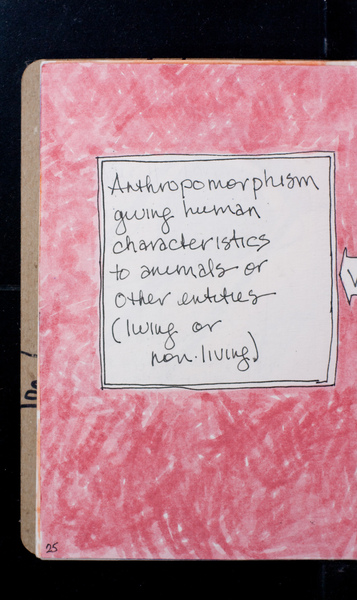 Anthropomorphism
giving human
characteristics
to animals or
other entities
(living or
non-living)
25